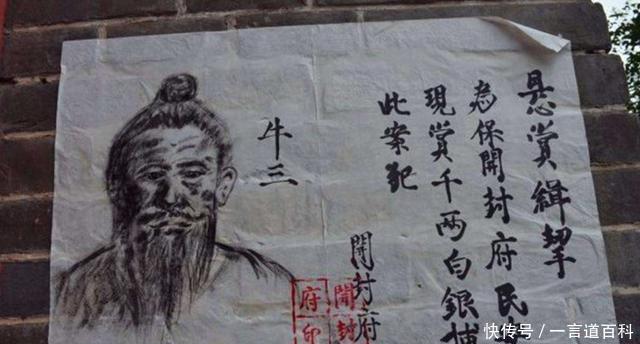 悬赏缉
保開封府民
現賞千两白銀
此案犯
開封府
牛三
開封
府印
快传号／一言道百科